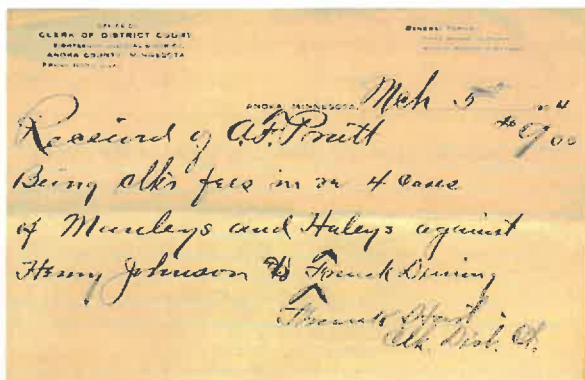 OFFICE OF
CLERK OF DISTRICT COURT
EIGHTEENTH JUDICIAL DISTRICT
ANOKA COUNTY, MINNESOTA
GENERAL TERMS
ANOKA, MINNESOTA, Mch 5
Received of A.F. Pratt $9.00
Being clk's fees in re 4 cases
of Munleys and Haleys against
Henry Johnson & Frank Deming
Frank Hart
Clk. Dist. Ct.